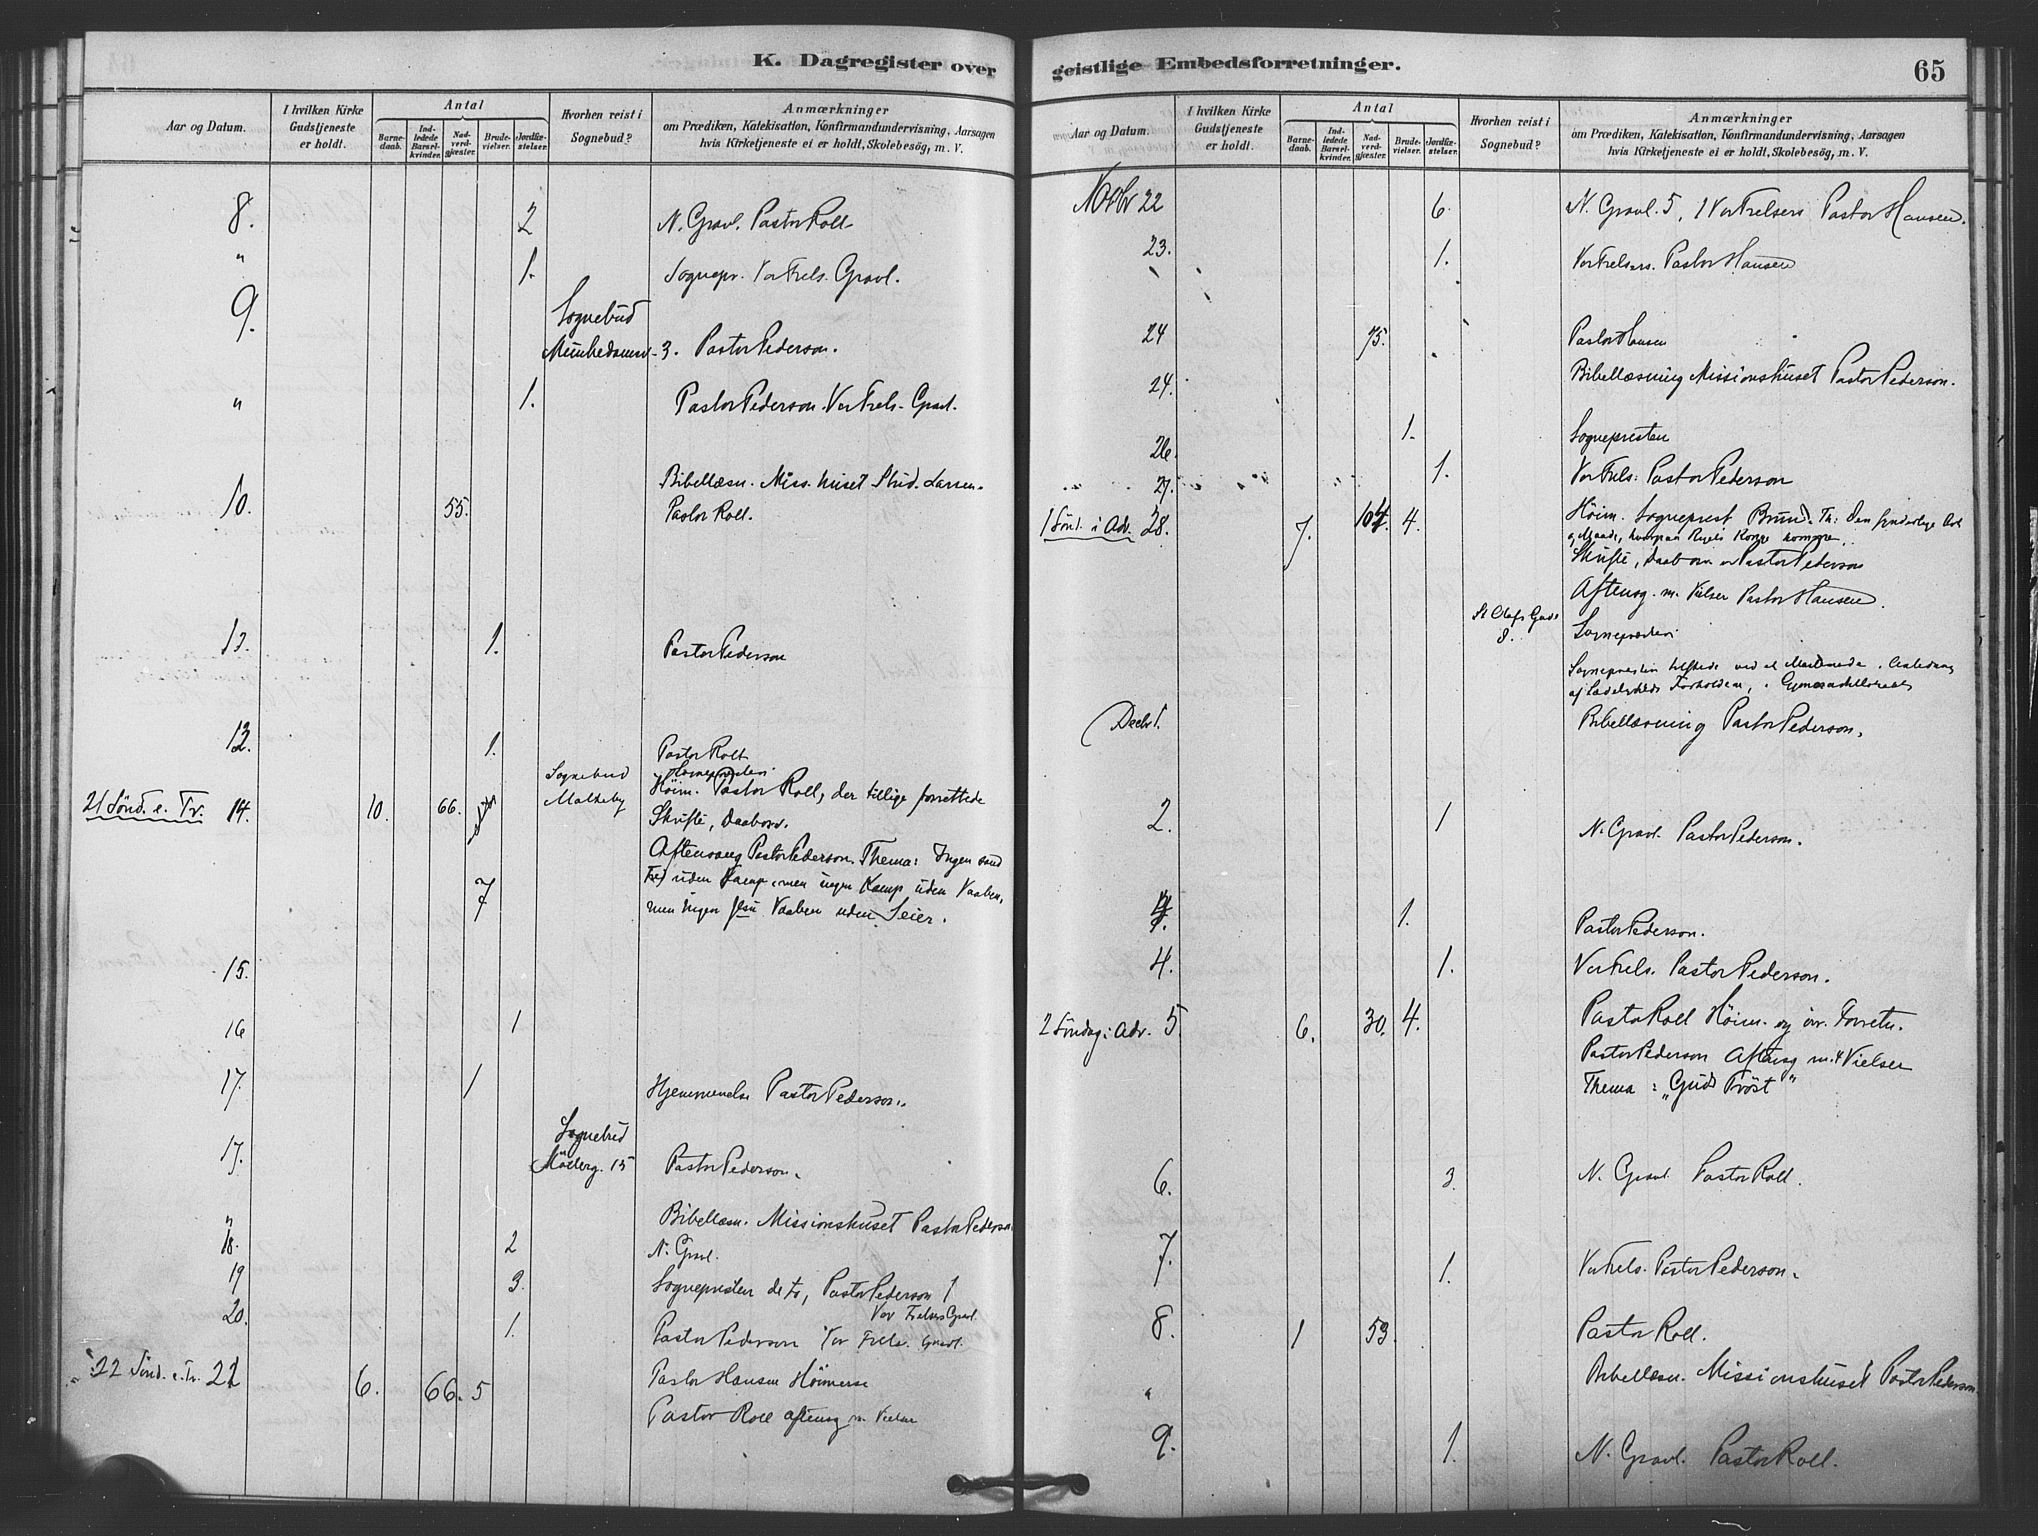 K. Dagregister over
Aar og Datum.
I hvilken Kirke Gudstjeneste er holdt.
Antal
Barne-daab.
Ind-ledede Barsel-kvinder.
Nad-verd-gjæster.
Brude-vielser.
Jordfæ-stelser.
Hvorhen reist i Sognebud?
Anmærkninger
om Prædiken, Katekisation, Konfirmandundervisning, Aarsagen
hvis Kirketjeneste ei er holdt, Skolebesög, m. V.
8. 2 N. Gravl. Pastor Roll
" 1. Sognepr. Vor Frels. Gravl.
9. Sognebud
Munkedamsv. 3. Pastor Pederson.
" 1. Pastor Pederson. Vor Frels. Gravl.
Bibellæsn. Miss. huset Stud. Larsen.
10. 55. Pastor Roll.
13. 1. Pastor Pederson
13. 1. Pastor Roll
Sognebud Sognepresten
21 Sönd. e. Tr. 14. 10. 66. Höim. Pastor Roll, der tillige forrettede
Skrifte, Daabov.
Aftensang Pastor Pederson. Thema: Ingen sand
7 Fred uden Kamp, men ingen Kamp uden Vaaben,
men ingen Jesu Vaaben uden Seier.
15.
16 1
17. 1 Hjemmevielse Pastor Pederson.
Sognebud
17. Möllerg. 15 Pastor Pederson.
" Bibellæsn. Missionshuset Pastor Pederson
18. 2 N. Gravl.
19 3. Sognepresten de to, Pastor Pederson 1
Vor Frelsers Gravl.
20. 1. Pastor Pederson Vor Frels. Gravl.
22 Sönd. e. Tr. 21 6. 66. 5 Pastor Hansen Höimesse
Pastor Roll aftensg m. Vielser
geistlige Embedsforretninger.
65
Aar og Datum.
I hvilken Kirke Gudstjeneste er holdt.
Antal
Barne-daab.
Ind-ledede Barsel-kvinder.
Nad-verd-gjæster.
Brude-vielser.
Jordfæ-stelser.
Hvorhen reist i Sognebud?
Anmærkninger
om Prædiken, Katekisation, Konfirmandundervisning, Aarsagen
hvis Kirketjeneste ei er holdt, Skolebesög, m. V.
Novbr 22 6. N. Gravl. 5, 1 Vor Frelsers Pastor Hansen.
23. 1. Vor Frelsers. Pastor Hansen
24 75. Pastor Hansen
24. Bibellæsning Missionshuset Pastor Pederson.
26. 1. Sognepresten
27. 1. Vor Frels. Pastor Pederson
1 Sönd. i Adv. 28. 7. 104. 4. Höim. Sogneprest Bruun. Th: Den Art
og Maade, hvorpaa Konge kommer.
Skrifte, Daab Pastor Pederson
Aftensg. m. Vielser Pastor Hansen.
St Olafs Gade
8. Sognepresten
Sognepresten tilstede ved et i Anledning
af
Decbr 1. Bibellæsning Pastor Pederson.
2. 1 N. Gravl. Pastor Pederson.
4. 1. Pastor Pederson.
4. 1. Vor Frels. Pastor Pederson.
2 Söndag i Adv. 5. 6. 30. 4. Pastor Roll Höim. og öv. Forretn.
Pastor Pederson Aftensg m. 4 Vielser
Thema: „Guds Tröst"
6. 3. N. Gravl. Pastor Roll.
7. 1. Vor Frels. Pastor Pederson.
8. 1 53. Pastor Roll.
" Bibellæsn. Missionshuset Pastor Pederson
9. 1. N. Gravl. Pastor Roll.